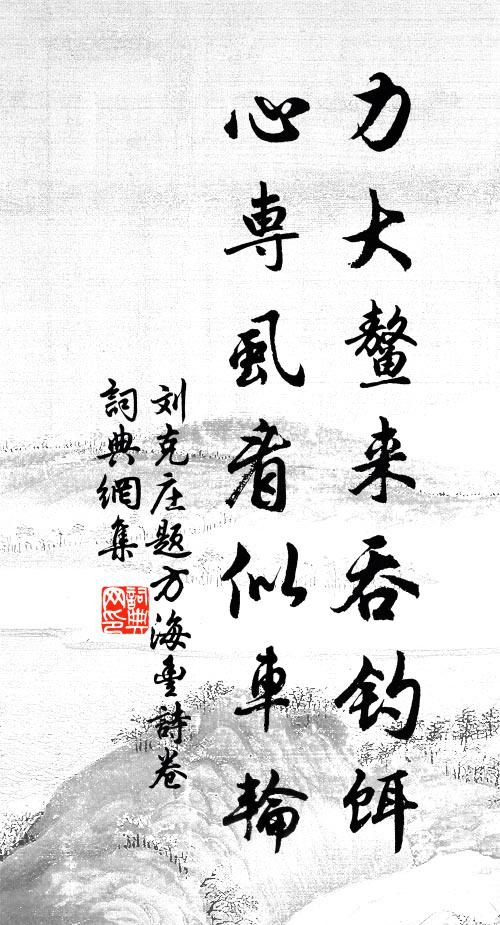 力大鳌来吞钓饵
心専虱看似車輪
刘克庄题方海豊詩卷
詞典網集
詞典网印